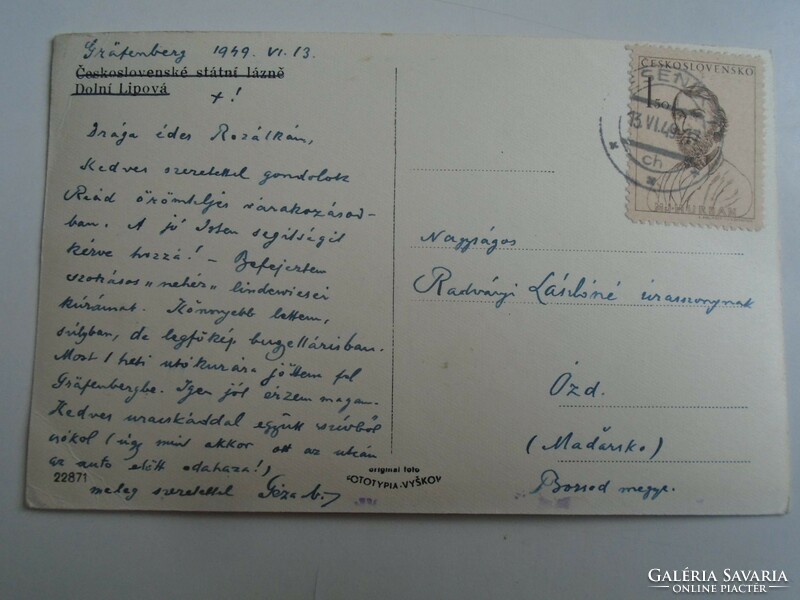 Gräfenberg 1949. VI. 13.
Československé státní lázně
Dolní Lipová
+!
Drága édes Rozálkám,
Kedves szeretettel gondolok
Reád örömteljes várakozásod-
ban. A jó Isten segítségét
kérve hozzá! – Befejeztem
szokásos "nehéz" lindewiesei
kúrámat. Könnyebb lettem,
súlyban, de legfőkép bugyellárisban.
Most 1 heti utókurára jöttem fel
Gräfenbergbe. Igen jól érzem magam.
Kedves uracskáddal együtt szívből
csókol (úgy mint akkor ott az utcán
az auto előtt odahaza!)
meleg szeretettel Géza b.
22871
original foto
FOTOTYPIA-VYŠKOV
ČESKOSLOVENSKO
1.50
13.VI.49
ch
Nagyságos
Radványi Lászlóné úrasszonynak
Ózd.
(Maďarsko)
Borsod megye.
GALÉRIA SAVARIA
ONLINE PIACTÉR